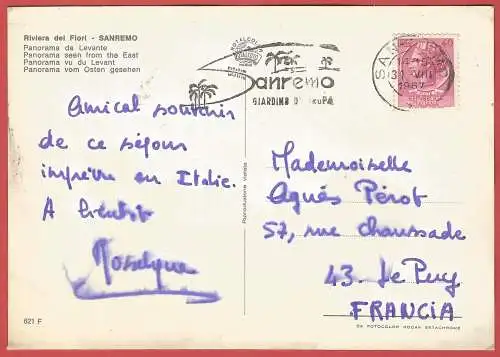 Riviera dei Fiori - SANREMO
Panorama da Levante
Panorama seen from the East
Panorama vu du Levant
Panorama vom Osten gesehen
Sanremo
GIARDINO D'EUROPA
1967
Amical souvenir
de ce séjour
imprévu en Italie.
A bientôt
Mademoiselle
Agnès Pérot
57, rue chaussade
43. Le Puy
FRANCIA
Riproduzione vietata
621 F
DA FOTOCOLOR KODAK EKTACHROME